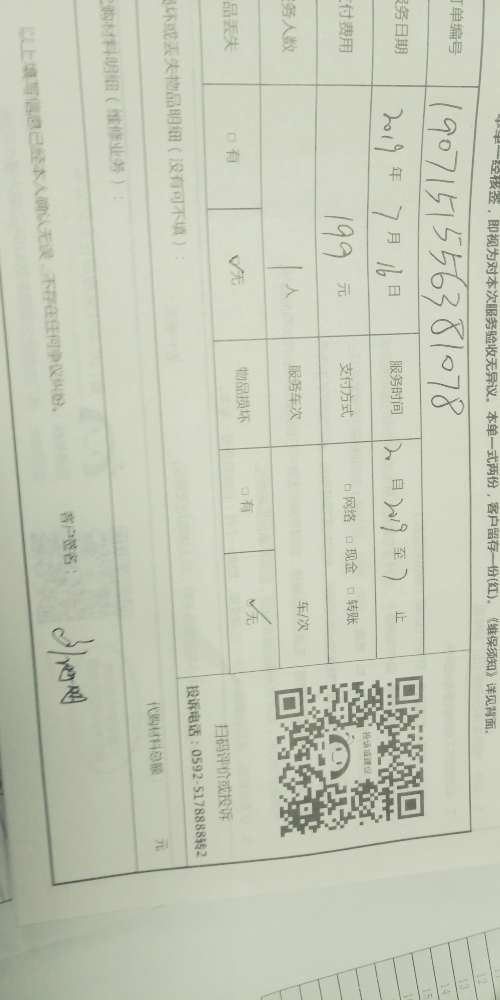 本单一经核签，即视为对本次服务验收无异议。本单一式两份，客户留存一份(红)。《维保须知》详见背面。
订单编号 190715155638 1078
服务日期 2019 年 7 月 16 日 服务时间 20 日 2019 至 7 止
支付费用 199 元 支付方式 □ 网络 □ 现金 □ 转账
服务人数 1 人 服务车次 车/次
物品丢失 □ 有 ✓无 物品损坏 □ 有 ✓无
投诉或建议
扫码评价或投诉
投诉电话：0592-5178888转2
损坏或丢失物品明细（没有可不填）：
代购材料明细（维修业务）：
代购材料总额 元
以上填写信息已经本人确认无误，不存在任何争议纠纷。
客户签名：
12
13
14
15